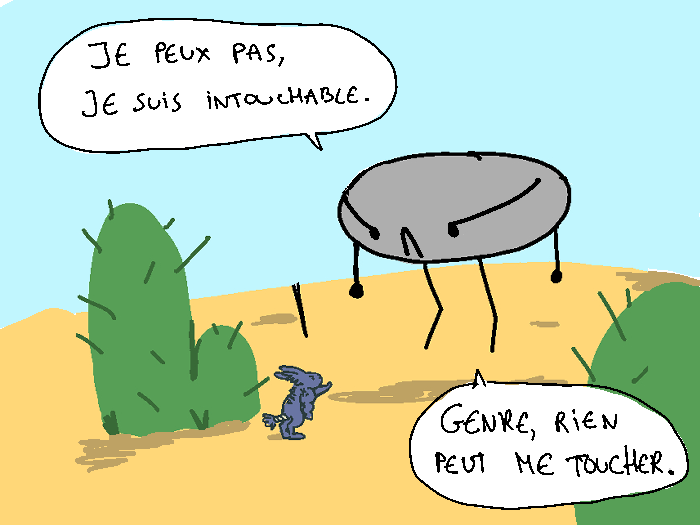 JE PEUX PAS,
JE SUIS INTOUCHABLE.
GENRE, RIEN
PEUT ME TOUCHER.